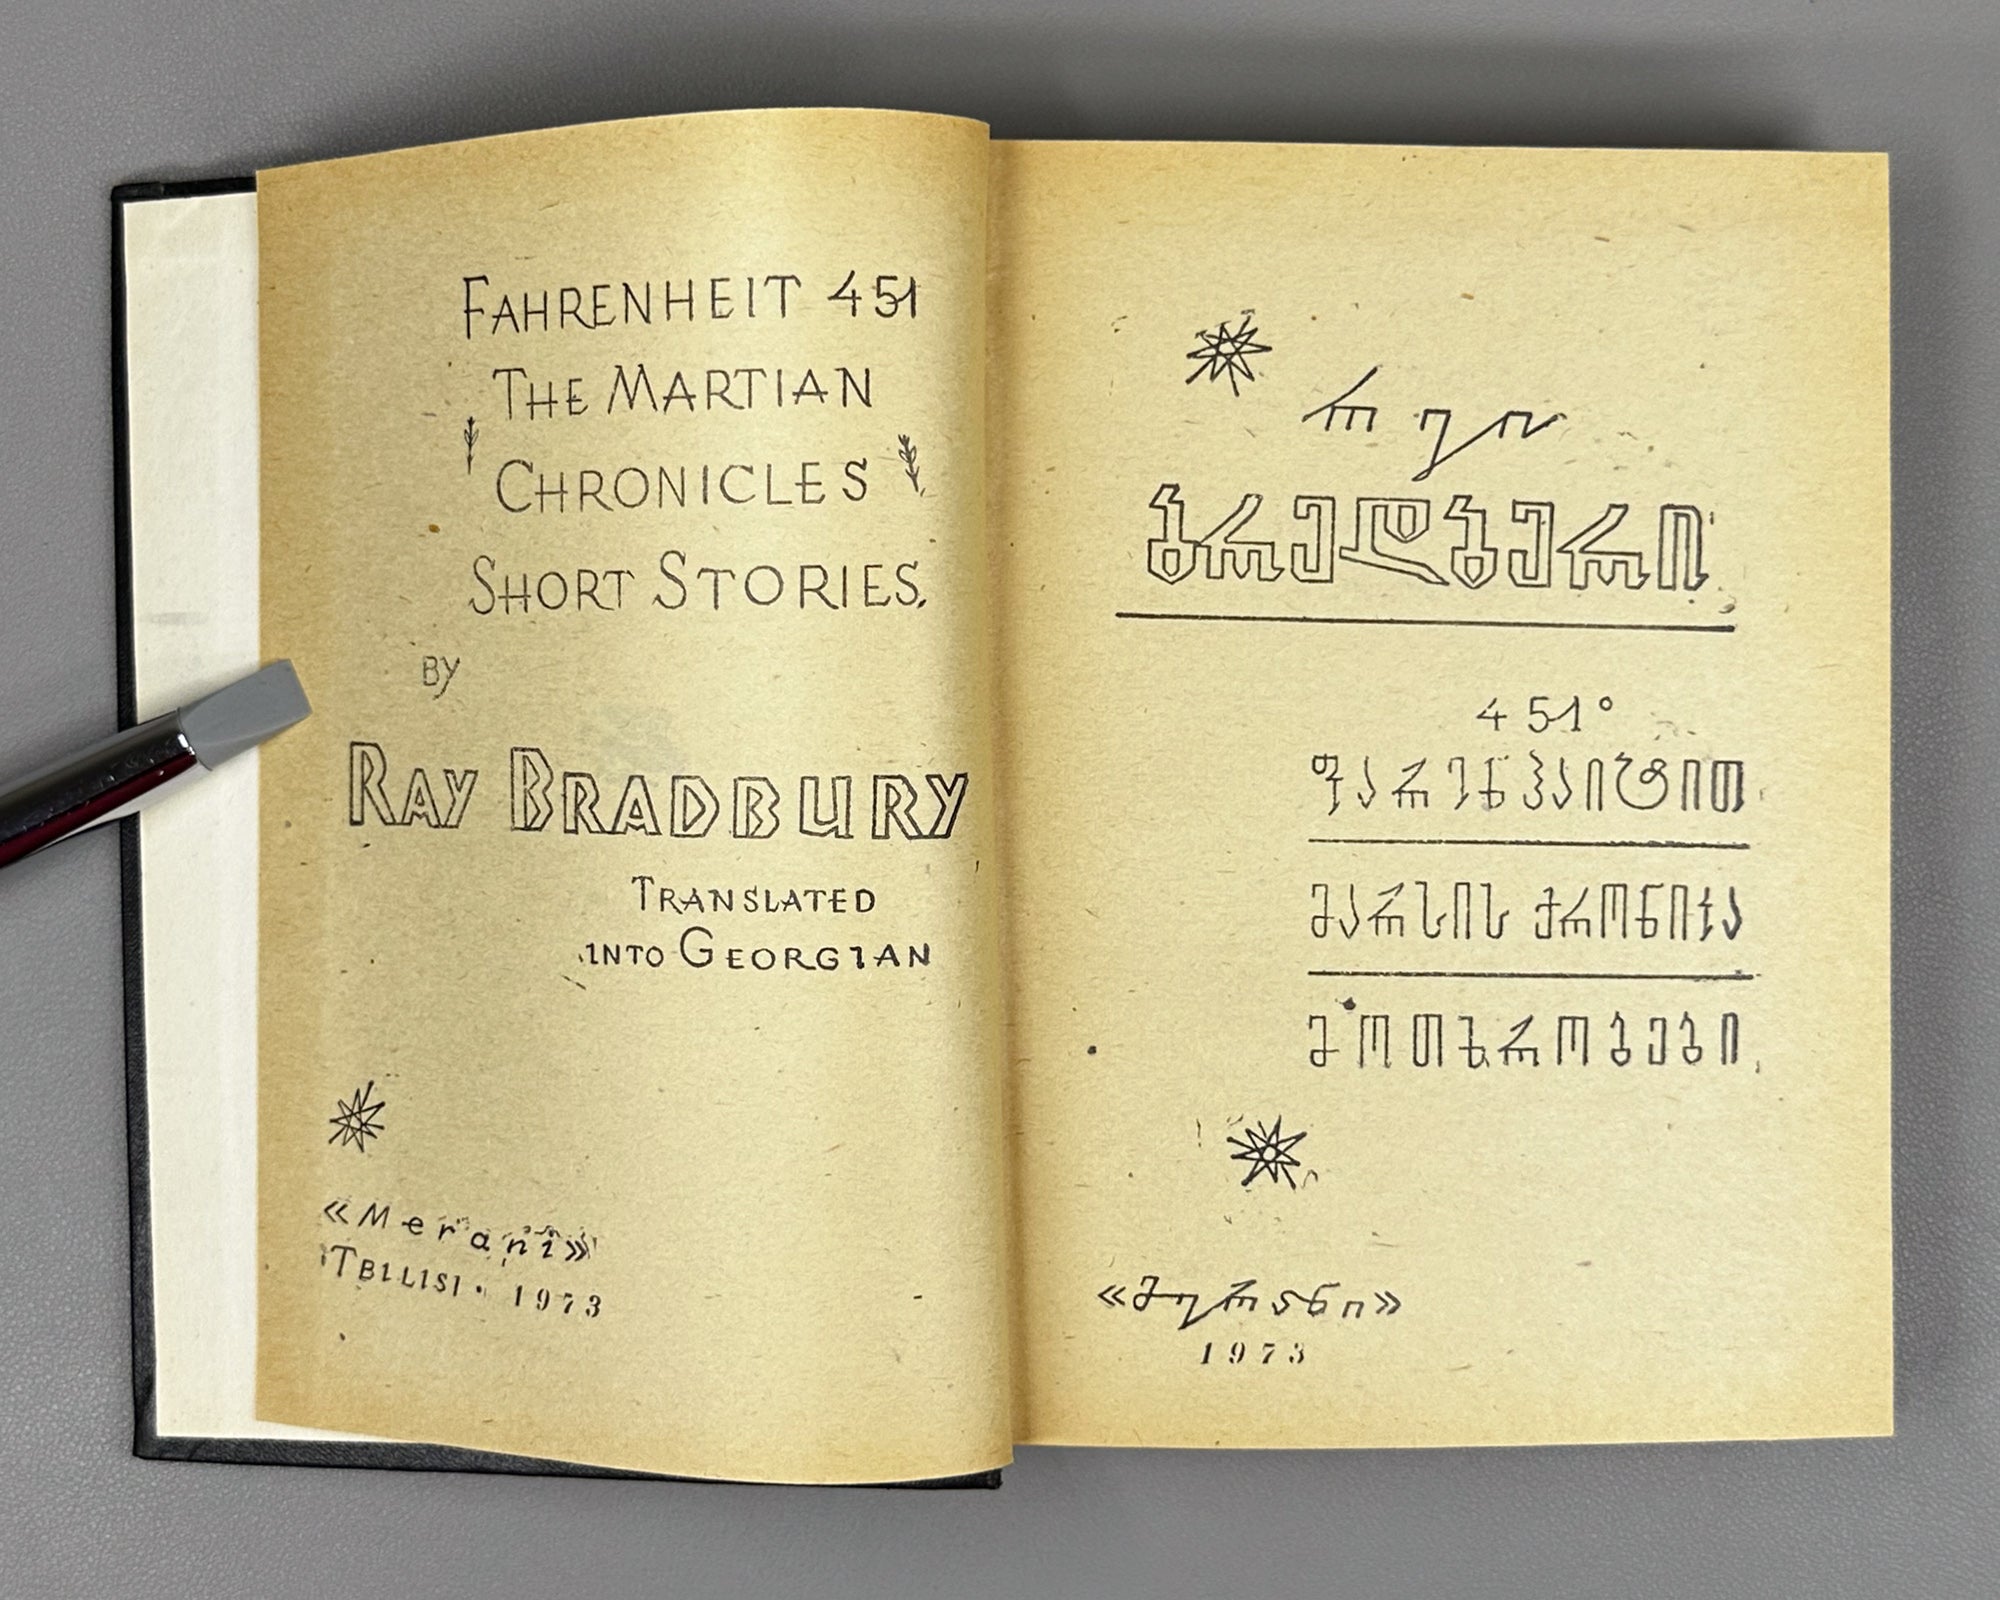 FAHRENHEIT 451
THE MARTIAN
CHRONICLES
SHORT STORIES.
BY
RAY BRADBURY
TRANSLATED
INTO GEORGIAN
«Merani»
TBILISI · 1973
რეი
ბრედბერი
451°
ფარენჰაიტით
მარსის ქრონიკა
მოთხრობები
«მერანი»
1973